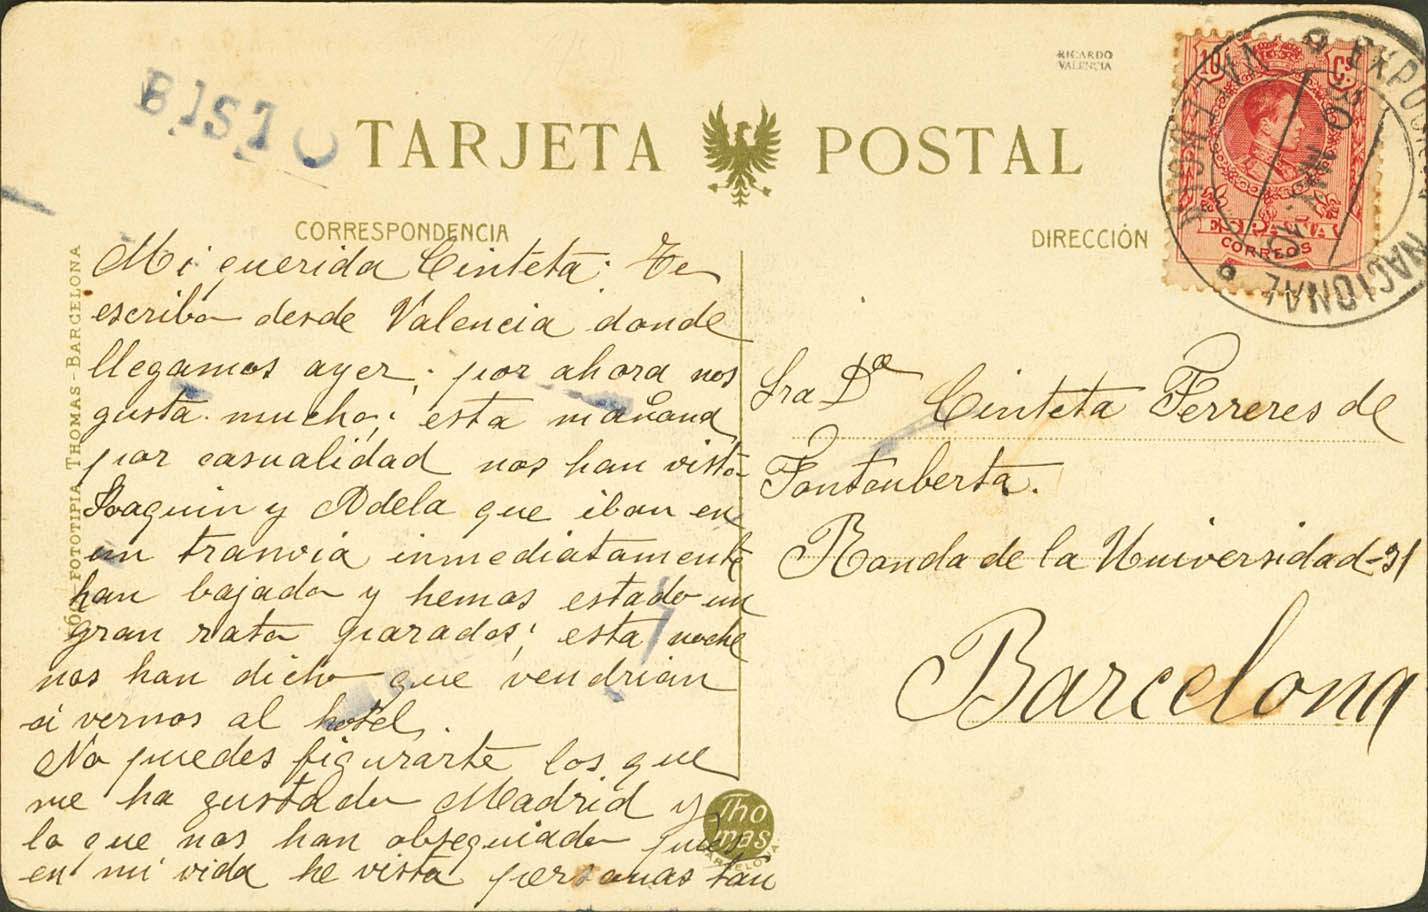 BISTO
RICARDO
VALENCIA
TARJETA POSTAL
CORRESPONDENCIA
DIRECCIÓN
10 Cs
ESPAÑA
CORREOS
EXPOSICIÓN NACIONAL
VALENCIA
30 MAY 10
FOTOTIPIA THOMAS - BARCELONA
Mi querida Cinteta: Te
escribo desde Valencia donde
llegamos ayer; por ahora nos
gusta mucho; esta mañana
por casualidad nos han visto
Joaquin y Adela que iban en
un tranvia inmediatamente
han bajado y hemos estado un
gran rato parados; esta noche
nos han dicho que vendrian
á vernos al hotel.
No puedes figurarte los que
me ha gustado Madrid y
lo que nos han obsequiado pués
en mi vida he visto personas tan
Sra Dª Cinteta Ferreres de
Fontcuberta.
Ronda de la Universidad-31
Barcelona
Thomas
BARCELONA